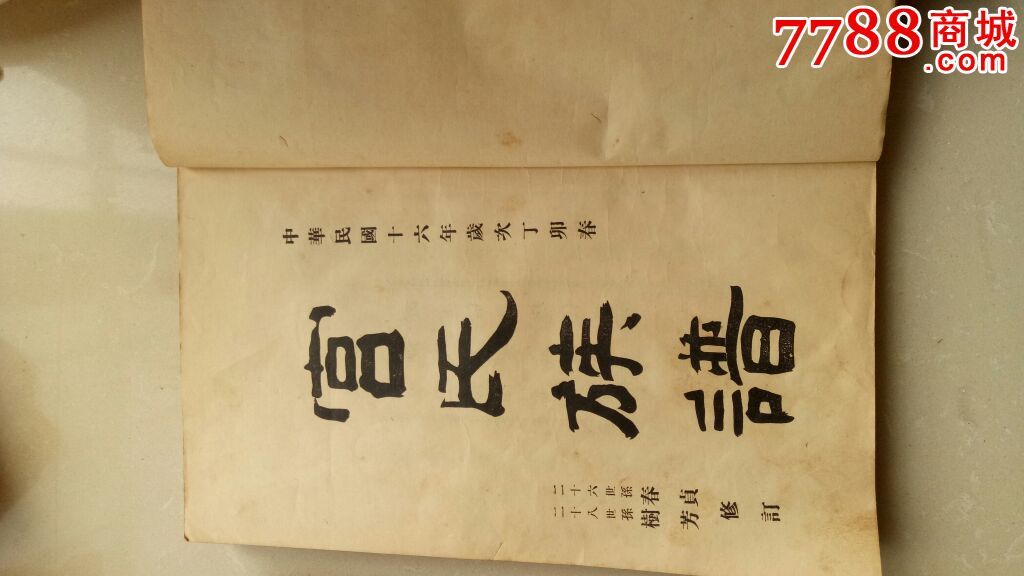 7788商城
.com
中華民國十六年歲次丁卯春
宮氏族譜
二十六世孫春貞
二十八世孫樹芳
修訂